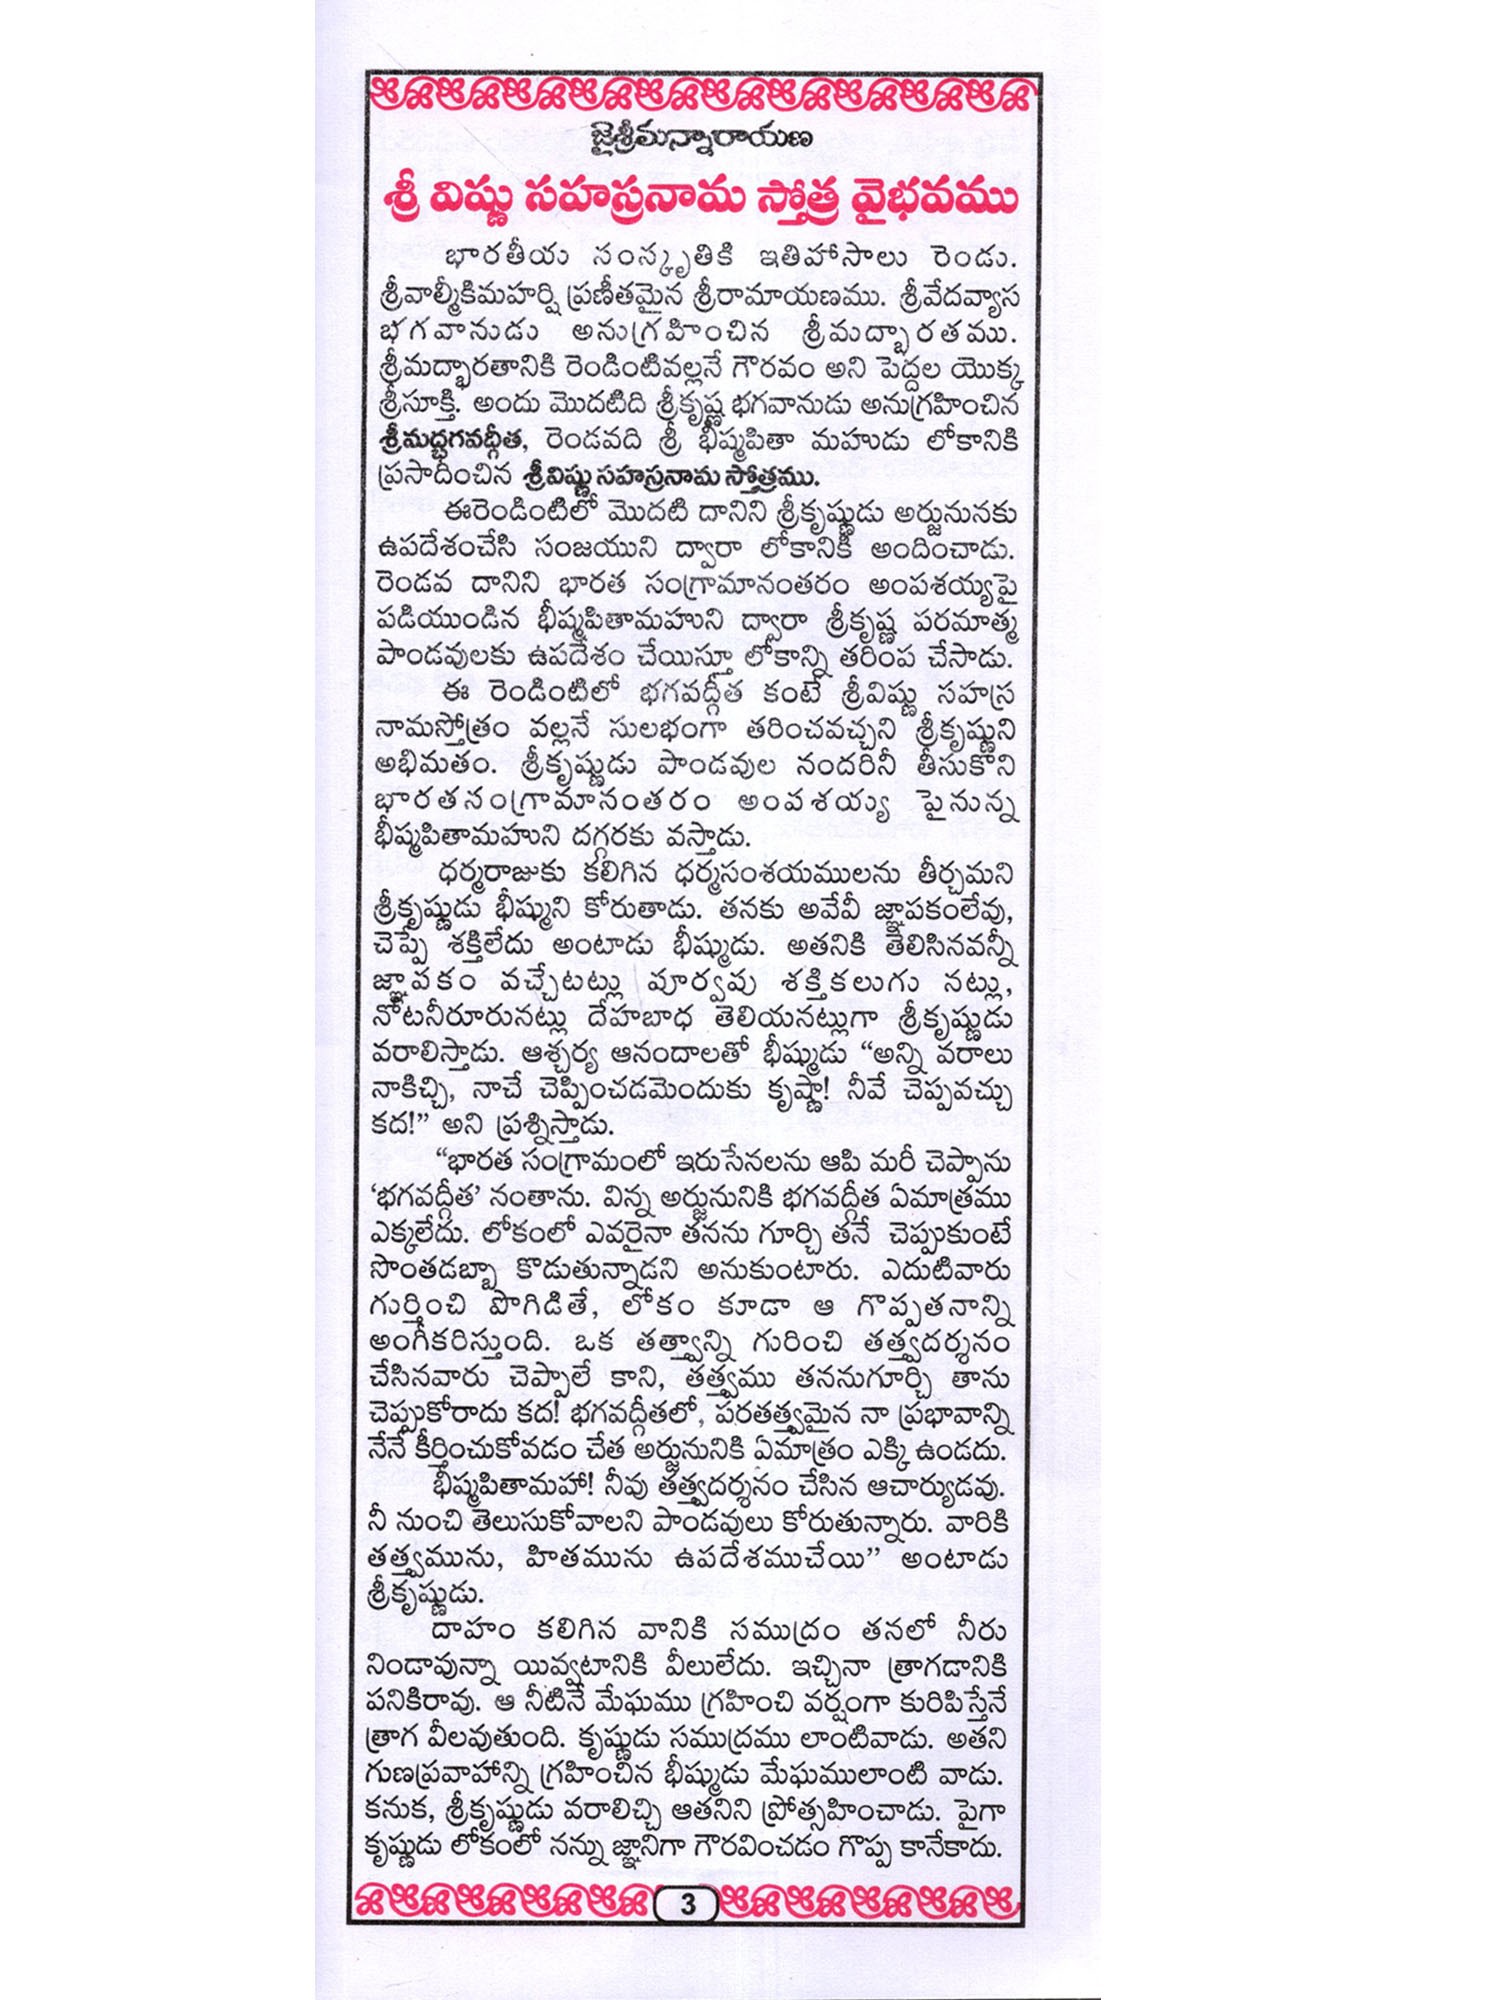 జైశ్రీమన్నారాయణ
శ్రీ విష్ణు సహస్రనామ స్తోత్ర వైభవము
భారతీయ సంస్కృతికి ఇతిహాసాలు రెండు.
శ్రీవాల్మీకిమహర్షి ప్రణీతమైన శ్రీరామాయణము. శ్రీవేదవ్యాస
భగవానుడు అనుగ్రహించిన శ్రీమద్భారతము.
శ్రీమద్భారతానికి రెండింటివల్లనే గౌరవం అని పెద్దల యొక్క
శ్రీసూక్తి. అందు మొదటిది శ్రీకృష్ణ భగవానుడు అనుగ్రహించిన
శ్రీమద్భగవద్గీత, రెండవది శ్రీ భీష్మపితా మహుడు లోకానికి
ప్రసాదించిన శ్రీవిష్ణు సహస్రనామ స్తోత్రము.
ఈరెండింటిలో మొదటి దానిని శ్రీకృష్ణుడు అర్జునునకు
ఉపదేశంచేసి సంజయుని ద్వారా లోకానికి అందించాడు.
రెండవ దానిని భారత సంగ్రామానంతరం అంపశయ్యపై
పడియుండిన భీష్మపితామహుని ద్వారా శ్రీకృష్ణ పరమాత్మ
పాండవులకు ఉపదేశం చేయిస్తూ లోకాన్ని తరింప చేసాడు.
ఈ రెండింటిలో భగవద్గీత కంటే శ్రీవిష్ణు సహస్ర
నామస్తోత్రం వల్లనే సులభంగా తరించవచ్చని శ్రీకృష్ణుని
అభిమతం. శ్రీకృష్ణుడు పాండవుల నందరినీ తీసుకొని
భారతసంగ్రామానంతరం అంపశయ్య పైనున్న
భీష్మపితామహుని దగ్గరకు వస్తాడు.
ధర్మరాజుకు కలిగిన ధర్మసంశయములను తీర్చమని
శ్రీకృష్ణుడు భీష్ముని కోరుతాడు. తనకు అవేవీ జ్ఞాపకంలేవు,
చెప్పే శక్తిలేదు అంటాడు భీష్ముడు. అతనికి తెలిసినవన్నీ
జ్ఞాపకం వచ్చేటట్లు పూర్వపు శక్తికలుగు నట్లు,
నోటనీరూరునట్లు దేహబాధ తెలియనట్లుగా శ్రీకృష్ణుడు
వరాలిస్తాడు. ఆశ్చర్య ఆనందాలతో భీష్ముడు “అన్ని వరాలు
నాకిచ్చి, నాచే చెప్పించడమెందుకు కృష్ణా! నీవే చెప్పవచ్చు
కద!” అని ప్రశ్నిస్తాడు.
“భారత సంగ్రామంలో ఇరుసేనలను ఆపి మరీ చెప్పాను
‘భగవద్గీత’ నంతాను. విన్న అర్జునునికి భగవద్గీత ఏమాత్రము
ఎక్కలేదు. లోకంలో ఎవరైనా తనను గూర్చి తనే చెప్పుకుంటే
సొంతడబ్బా కొడుతున్నాడని అనుకుంటారు. ఎదుటివారు
గుర్తించి పొగిడితే, లోకం కూడా ఆ గొప్పతనాన్ని
అంగీకరిస్తుంది. ఒక తత్త్వాన్ని గురించి తత్త్వదర్శనం
చేసినవారు చెప్పాలే కాని, తత్త్వము తననుగూర్చి తాను
చెప్పుకోరాదు కద! భగవద్గీతలో, పరతత్త్వమైన నా ప్రభావాన్ని
నేనే కీర్తించుకోవడం చేత అర్జునునికి ఏమాత్రం ఎక్కి ఉండదు.
భీష్మపితామహా! నీవు తత్త్వదర్శనం చేసిన ఆచార్యుడవు.
నీ నుంచి తెలుసుకోవాలని పాండవులు కోరుతున్నారు. వారికి
తత్త్వమును, హితమును ఉపదేశముచేయి” అంటాడు
శ్రీకృష్ణుడు.
దాహం కలిగిన వానికి సముద్రం తనలో నీరు
నిండావున్నా యివ్వటానికి వీలులేదు. ఇచ్చినా త్రాగడానికి
పనికిరావు. ఆ నీటినే మేఘము గ్రహించి వర్షంగా కురిపిస్తేనే
త్రాగ వీలవుతుంది. కృష్ణుడు సముద్రము లాంటివాడు. అతని
గుణప్రవాహాన్ని గ్రహించిన భీష్ముడు మేఘములాంటి వాడు.
కనుక, శ్రీకృష్ణుడు వరాలిచ్చి ఆతనిని ప్రోత్సహించాడు. పైగా
కృష్ణుడు లోకంలో నన్ను జ్ఞానిగా గౌరవించడం గొప్ప కానేకాదు.
3